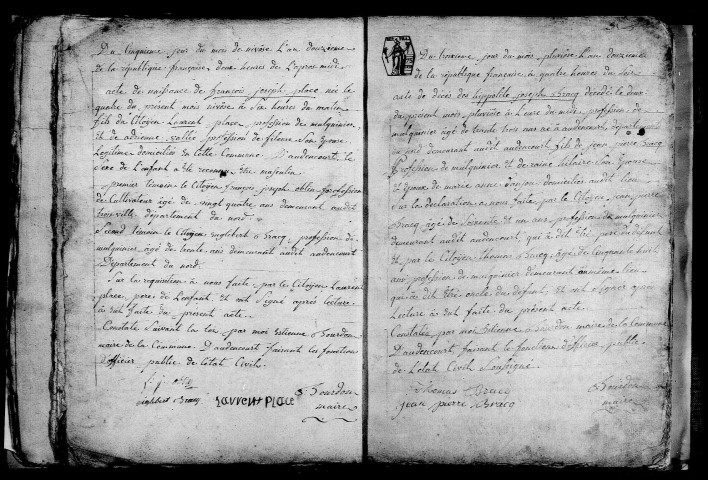 Du cinquieme jour du mois de nivôse L'an douzieme
de la republique francaise douse heures de L'apres midi
acte de naissance de francois joseph place né le
quatre du present mois nivôse à Six heures du matin
fils du Citoyen Laurent place profession de mulquinier
et de profession de fileuse Son Epouse
Legitime domiciliés en cette Commune D'audencourt, le
Sexe de L'enfant a Eté reconnu Etre masculin
premier temoin le Citoyen francois joseph profession
de Cultivateur agé de vingt quatre ans demeurant audit
ville département du nord
Second temoin le Citoyen Englebert Bracq, profession de
mulquinier agé de trente ans demeurant audit audencourt
Département du nord.
Sur la requisition à nous faite par le Citoyen Laurent
place, pere de L'enfant et ont Signé après lecture
à eux faite du present acte.
Constaté Suivant la loi par moi Etienne Bourdon
maire de la Commune D'audencourt faisant les fonctions
d'officier public de L'etat Civil.
Englebert Bracq
LAVRENt PLACE
Bourdon
maire
Du troisieme jour du mois pluviose L'an douzieme
de la republique francaise à quatre heures du Soir
acte de décès de hippolite joseph Bracq decedé le deux
du present mois pluviose à heure du midi profession de
mulquinier agé de trente trois ans né à audencourt departement
du nord demeurant audit audencourt fils de jean pierre Bracq
Profession de mulquinier et de Son Epouse
Epoux de marie anne domicilié audit lieu
Sur la declaration à nous faite par le Citoyen jean pierre
Bracq agé de Soixante et un ans profession de mulquinier
demeurant audit audencourt, qui à dit Etre pere du defunt
et par le Citoyen Thomas Bracq agé de Cinquante huit
ans profession de mulquinier demeurant au même lieu
qui à dit Etre oncle du defunt, et ont Signé après
Lecture à eux faite du présent acte.
Constatée par moi Etienne Bourdon maire de la Commune
D'audencourt faisant les fonctions d'officier public
de L'etat Civil Soussigné.
Thomas Bracq
jean pierre Bracq
Bourdon
maire